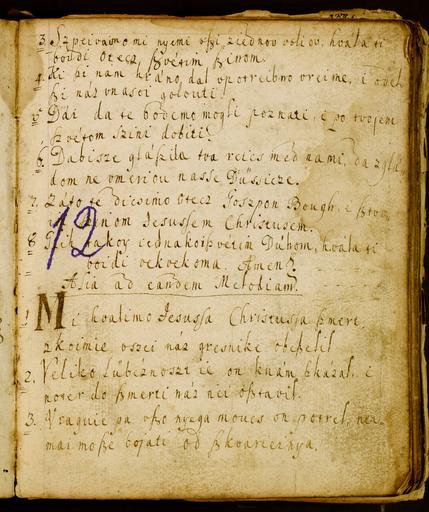 3. Szpeivaimo mi nyemi vßi ziednov voliov, hvala ti
boidi Otecz, ßvetim ßinom.
4. Ki ßi nam hrano, dal vpotreibno vreime, i
ßi náz vnasoi
5. Dái da te bodemo mogli poznati, i po tvojem
szvétom Szini dobiti.
6. Da bisze glászila tva reics med nami, da z glá
dom ne vmeriou nasse Düssicze.
7. Záto te dicsimo Otecz Goszpon Bough,
Szinom Jesussem Christussem.
8. takoy iednakoi ßvetim Duhom, hvála ti
boidi vekvekoma. Amen.
12
Alia ad eandem Melodiam.
1. Mi hvalimo Jesussa Christussa ßmert,
zkoimie oszei náz gresnike
2. Veliko lübeznoszt ie on knám ßkázal, i
do ßmerti náz nei oßtavil.
3. Vraguie pa vßo nyega moucs on potrel, ne
mai moße bojati od ßkvarienya.